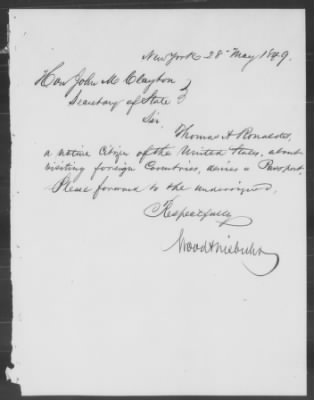 New York 28 May 1849.
Hon John M Clayton
Secretary of State
Sir
Thomas A Ronalds,
a native Citizen of the United States, about
visiting foreign Countries, desires a Passport,
Please forward to the undersigned,
Respectfully